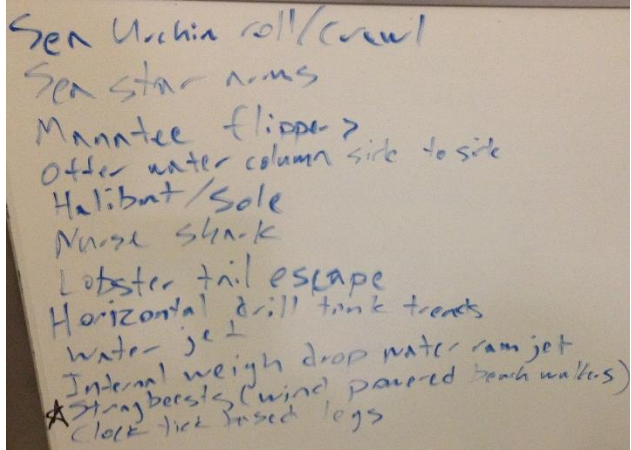 Sea Urchin roll/crawl
Sea star arms
Manatee flippers
Otter water column side to side
Halibut/Sole
Nurse shark
Lobster tail escape
Horizontal drill tank treads
Water jet
Internal weigh drop water ram jet
☆ Strandbeests (wind powered beach walkers)
Clock tick based legs